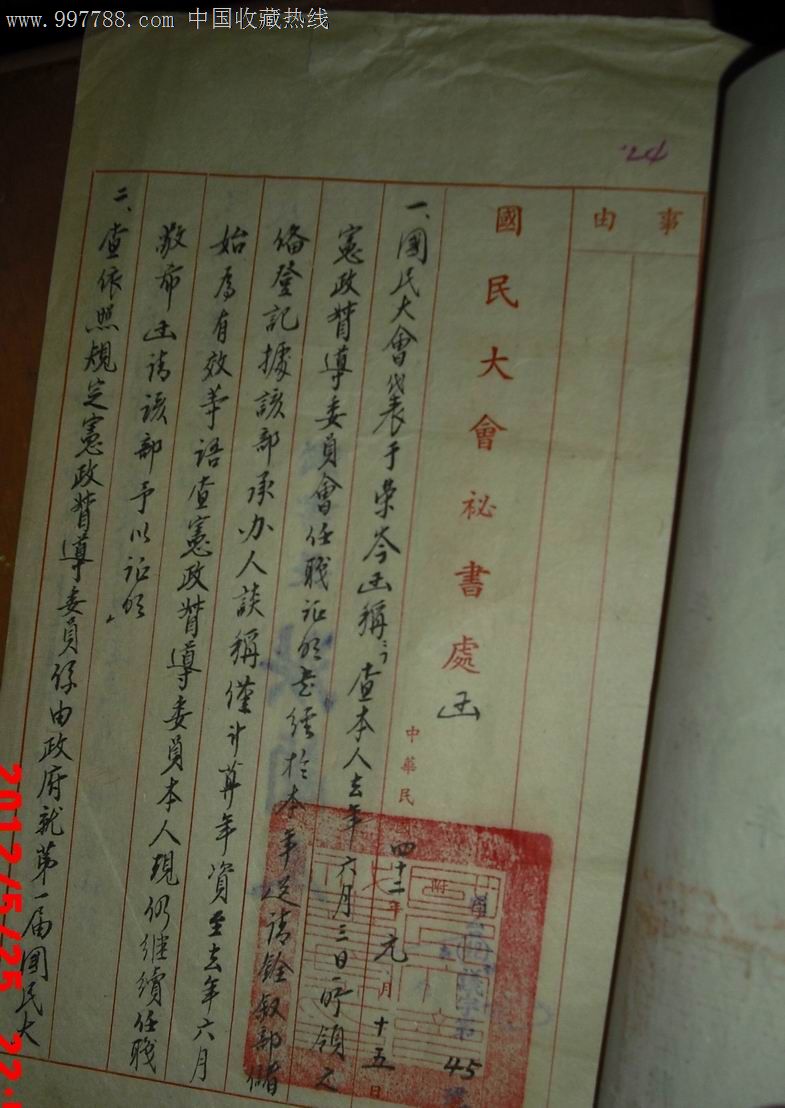 www.997788.com 中国收藏热线
24
事由
國民大會秘書處函
中華民 四十二年元月十五日
字第45號
一、國民大會代表于榮岑函稱「查本人去年六月三日所領之
憲政督導委員會任職证明書経於本年送請銓敍部儲
俻登記據該部承办人談稱僅计算年資至去年六月
始為有效等語查憲政督導委員本人現仍继續任職
敬希函请该部予以证明」
二、查依照規定憲政督導委員係由政府就第一届國民大
2012/5/25 22: